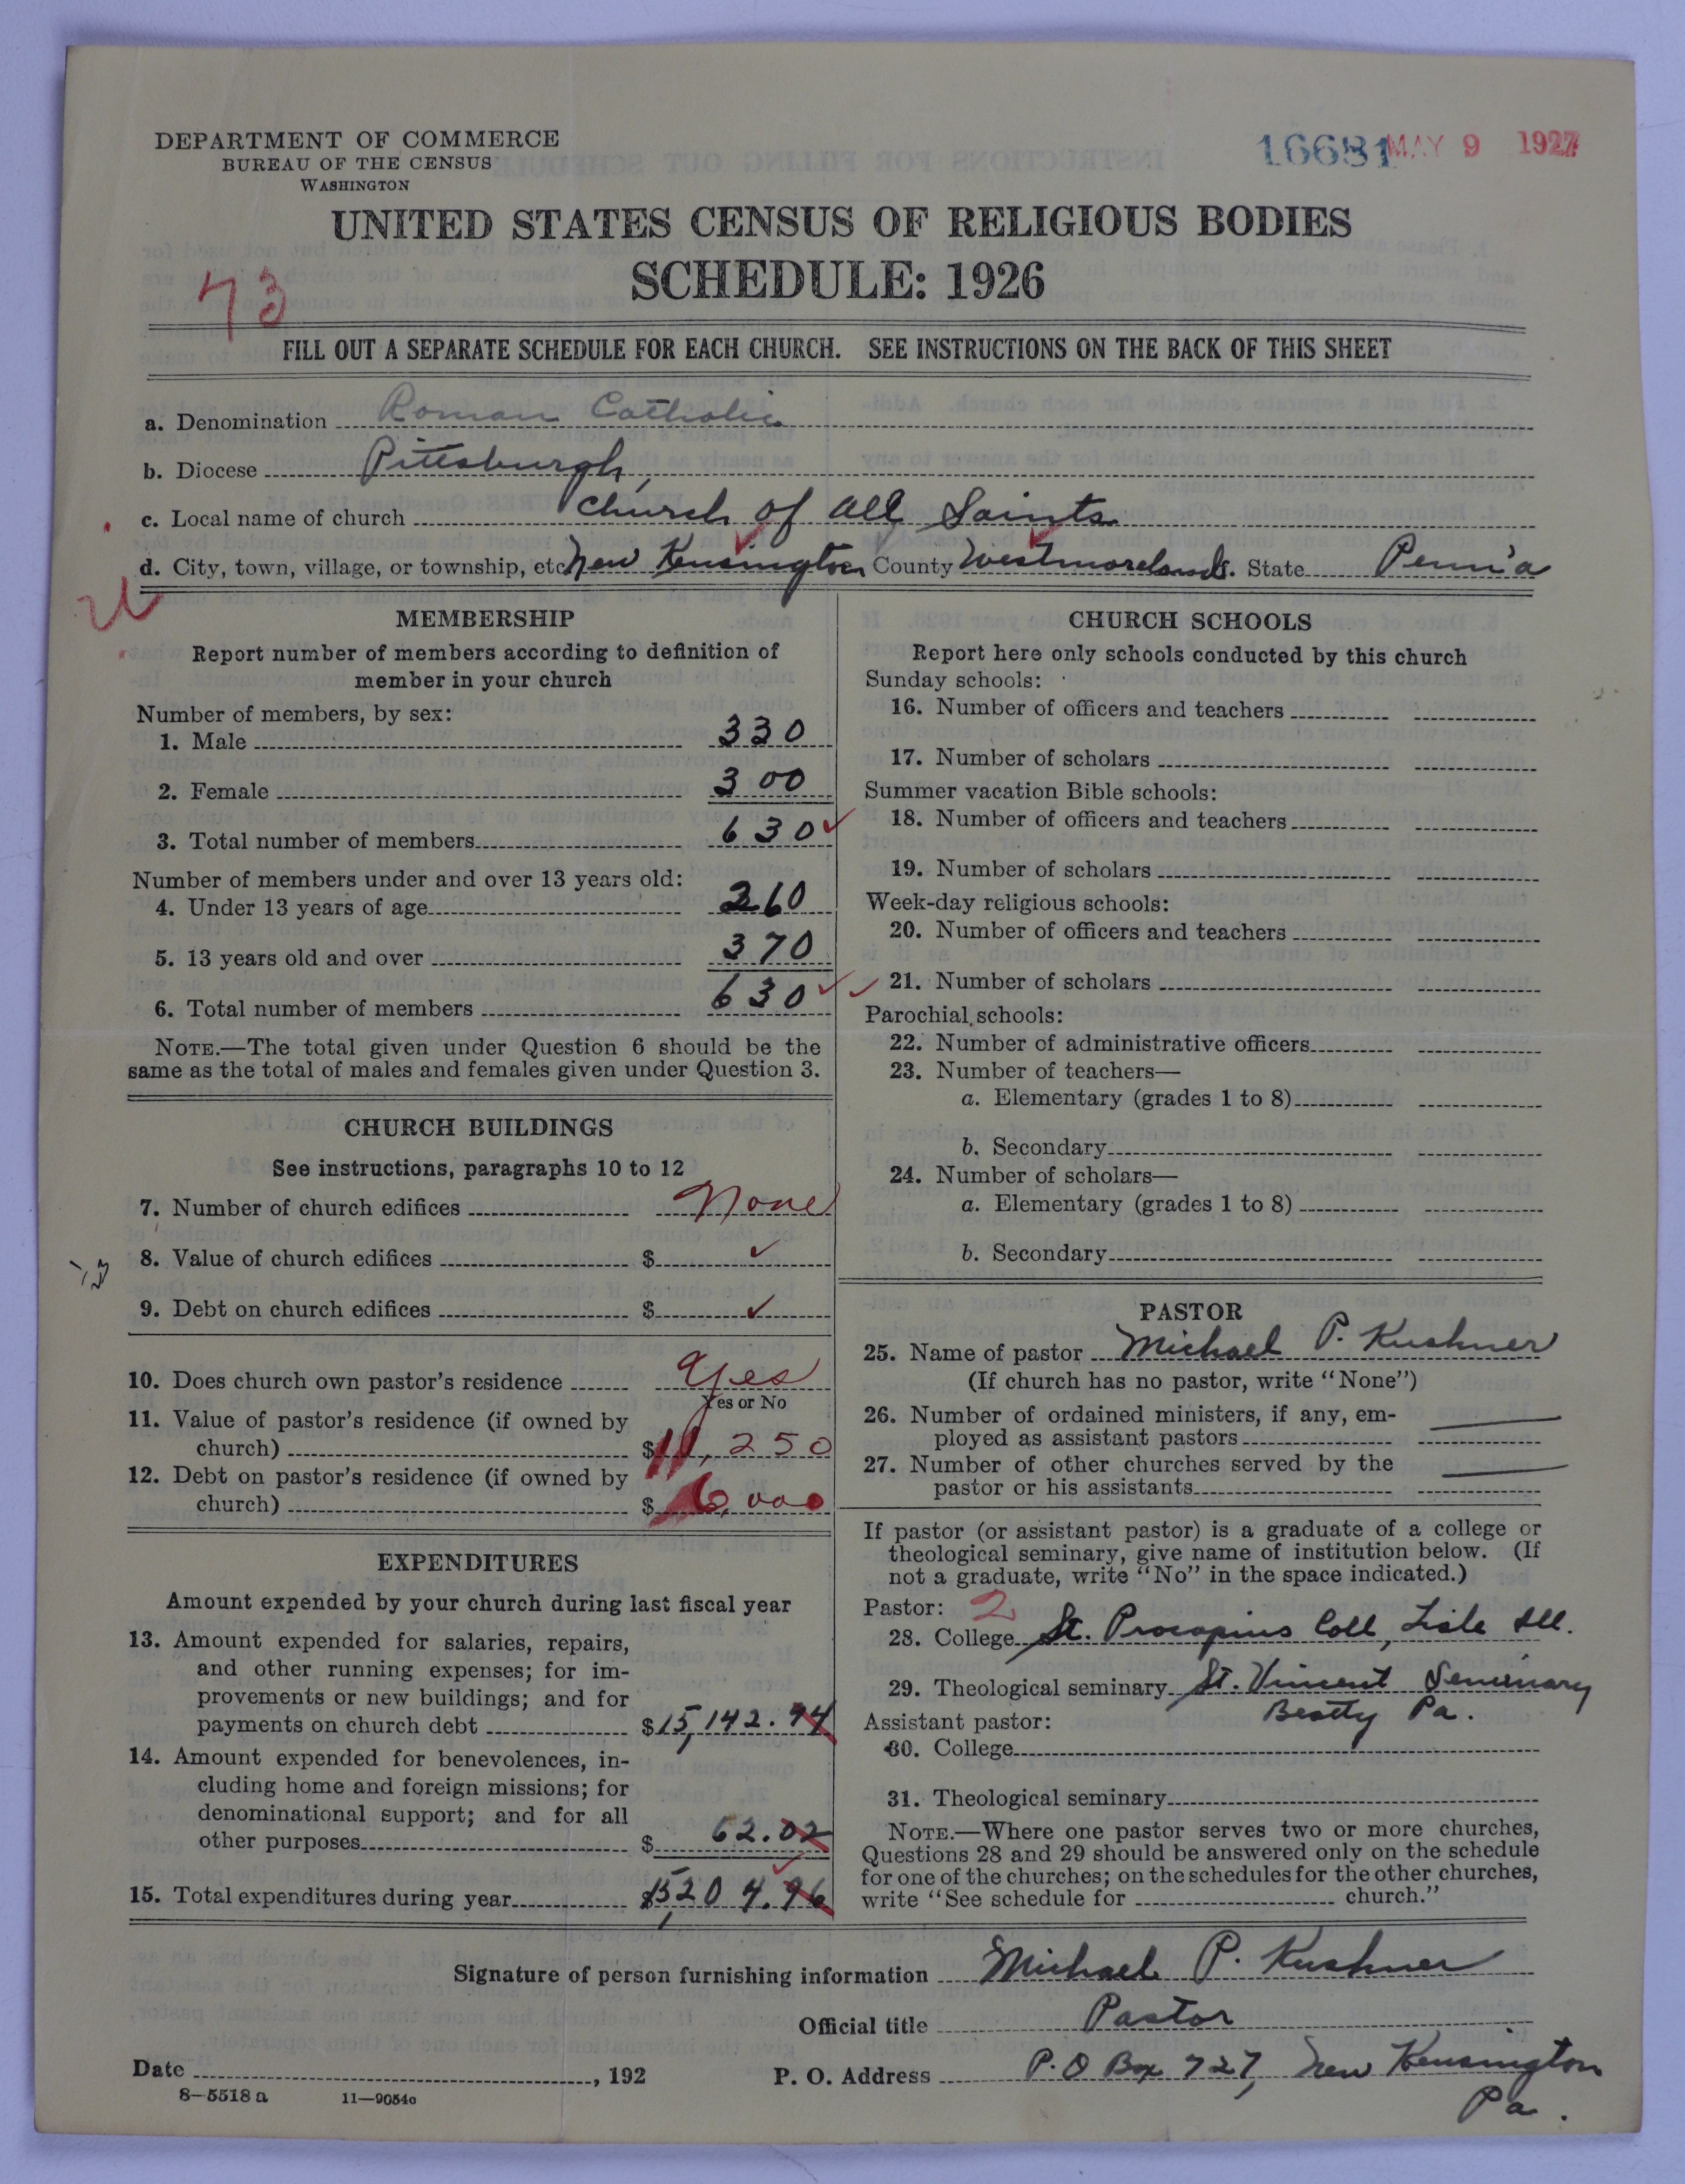 DEPARTMENT OF COMMERCE
BUREAU OF THE CENSUS
WASHINGTON
16681 MAY 9 1927
UNITED STATES CENSUS OF RELIGIOUS BODIES
SCHEDULE: 1926
73
FILL OUT A SEPARATE SCHEDULE FOR EACH CHURCH. SEE INSTRUCTIONS ON THE BACK OF THIS SHEET
a. Denomination Roman Catholic
b. Diocese Pittsburgh,
c. Local name of church Church of all Saints
d. City, town, village, or township, etc. New Kensington County Westmoreland. State Penn'a
MEMBERSHIP
Report number of members according to definition of
member in your church
Number of members, by sex:
1. Male 330
2. Female 300
3. Total number of members 630
Number of members under and over 13 years old:
4. Under 13 years of age 260
5. 13 years old and over 370
6. Total number of members 630
NOTE.—The total given under Question 6 should be the
same as the total of males and females given under Question 3.
CHURCH BUILDINGS
See instructions, paragraphs 10 to 12
7. Number of church edifices None
8. Value of church edifices $
9. Debt on church edifices $
10. Does church own pastor's residence Yes
Yes or No
11. Value of pastor's residence (if owned by
church) $11,250
12. Debt on pastor's residence (if owned by
church) $6,000
EXPENDITURES
Amount expended by your church during last fiscal year
13. Amount expended for salaries, repairs,
and other running expenses; for im-
provements or new buildings; and for
payments on church debt $15,142.94
14. Amount expended for benevolences, in-
cluding home and foreign missions; for
denominational support; and for all
other purposes $ 62.02
15. Total expenditures during year $15,204.96
CHURCH SCHOOLS
Report here only schools conducted by this church
Sunday schools:
16. Number of officers and teachers
17. Number of scholars
Summer vacation Bible schools:
18. Number of officers and teachers
19. Number of scholars
Week-day religious schools:
20. Number of officers and teachers
21. Number of scholars
Parochial schools:
22. Number of administrative officers
23. Number of teachers—
a. Elementary (grades 1 to 8)
b. Secondary
24. Number of scholars—
a. Elementary (grades 1 to 8)
b. Secondary
PASTOR
25. Name of pastor Michael P. Kushner
(If church has no pastor, write "None")
26. Number of ordained ministers, if any, em-
ployed as assistant pastors
27. Number of other churches served by the
pastor or his assistants
If pastor (or assistant pastor) is a graduate of a college or
theological seminary, give name of institution below. (If
not a graduate, write "No" in the space indicated.)
Pastor: 2
28. College St. Procopius Coll, Lisle Ill.
29. Theological seminary St. Vincent Seminary
Beatty Pa.
Assistant pastor:
30. College
31. Theological seminary
NOTE.—Where one pastor serves two or more churches,
Questions 28 and 29 should be answered only on the schedule
for one of the churches; on the schedules for the other churches,
write "See schedule for church."
Signature of person furnishing information Michael P. Kushner
Official title Pastor
Date , 192
P. O. Address P.O Box 727, New Kensington
Pa.
8-5518 a 11-9054c